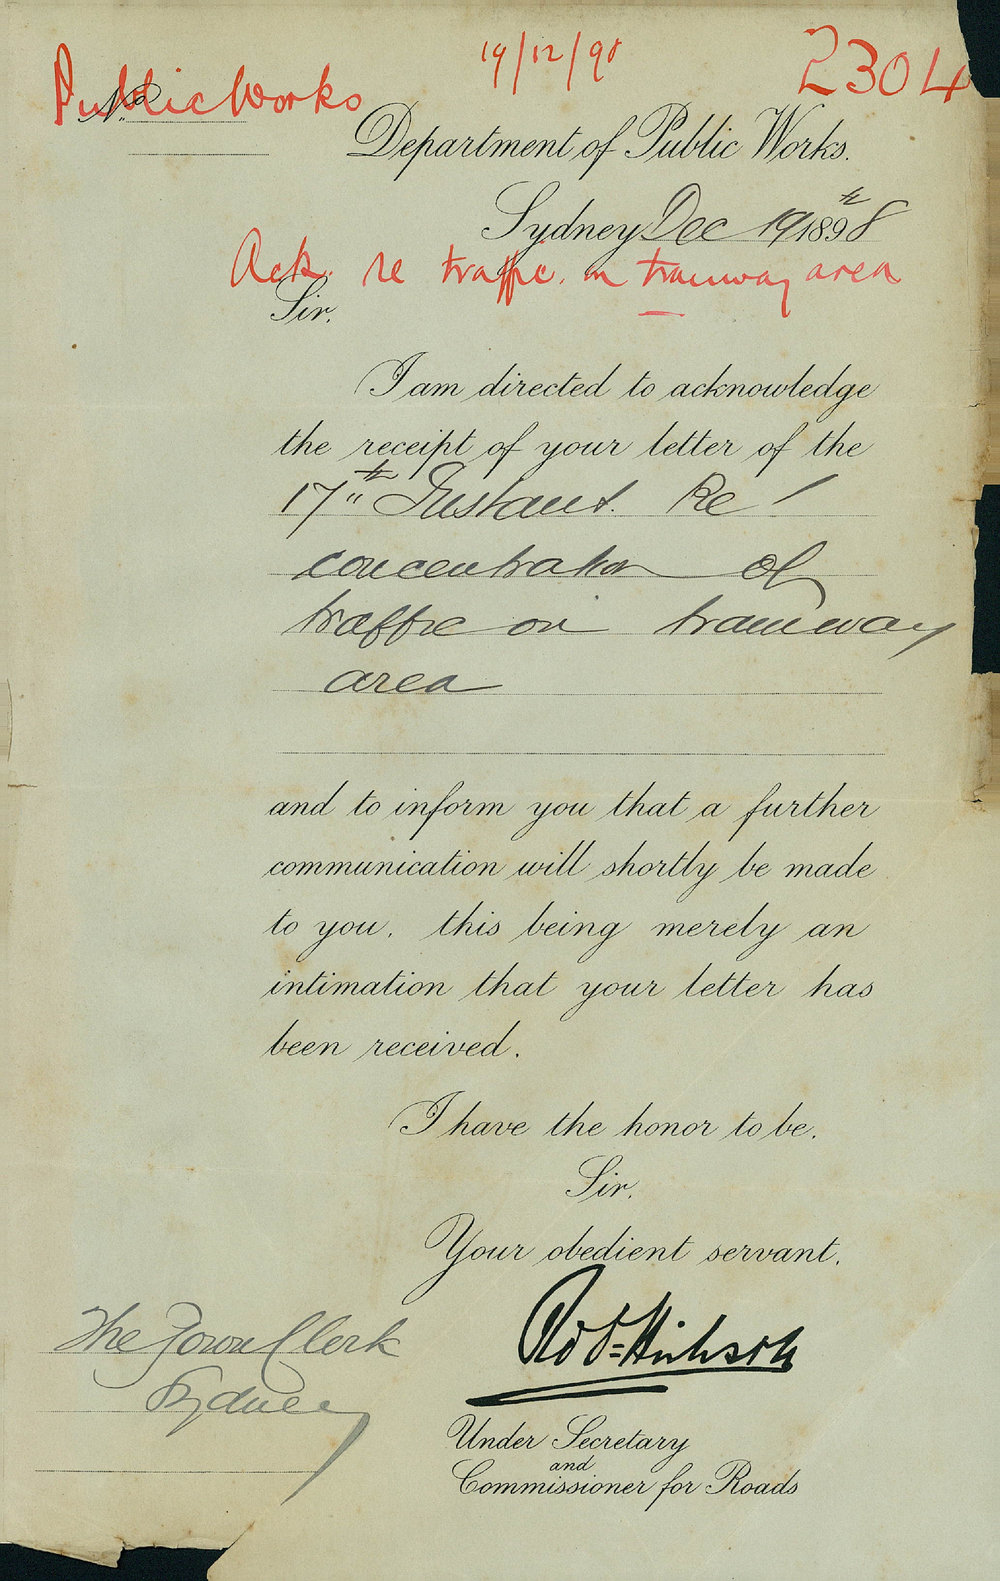 Public Works
19/12/98
2304
No.
Department of Public Works.
Sydney Dec 19th 1898
Ack. re traffic. on tramway area
Sir,
I am directed to acknowledge
the receipt of your letter of the
17th Instant. Re
concentration of
traffic on tramway
area
and to inform you that a further
communication will shortly be made
to you, this being merely an
intimation that your letter has
been received.
I have the honor to be,
Sir,
Your obedient servant,
The Town Clerk
Sydney
Robt Hickson
Under Secretary
and
Commissioner for Roads